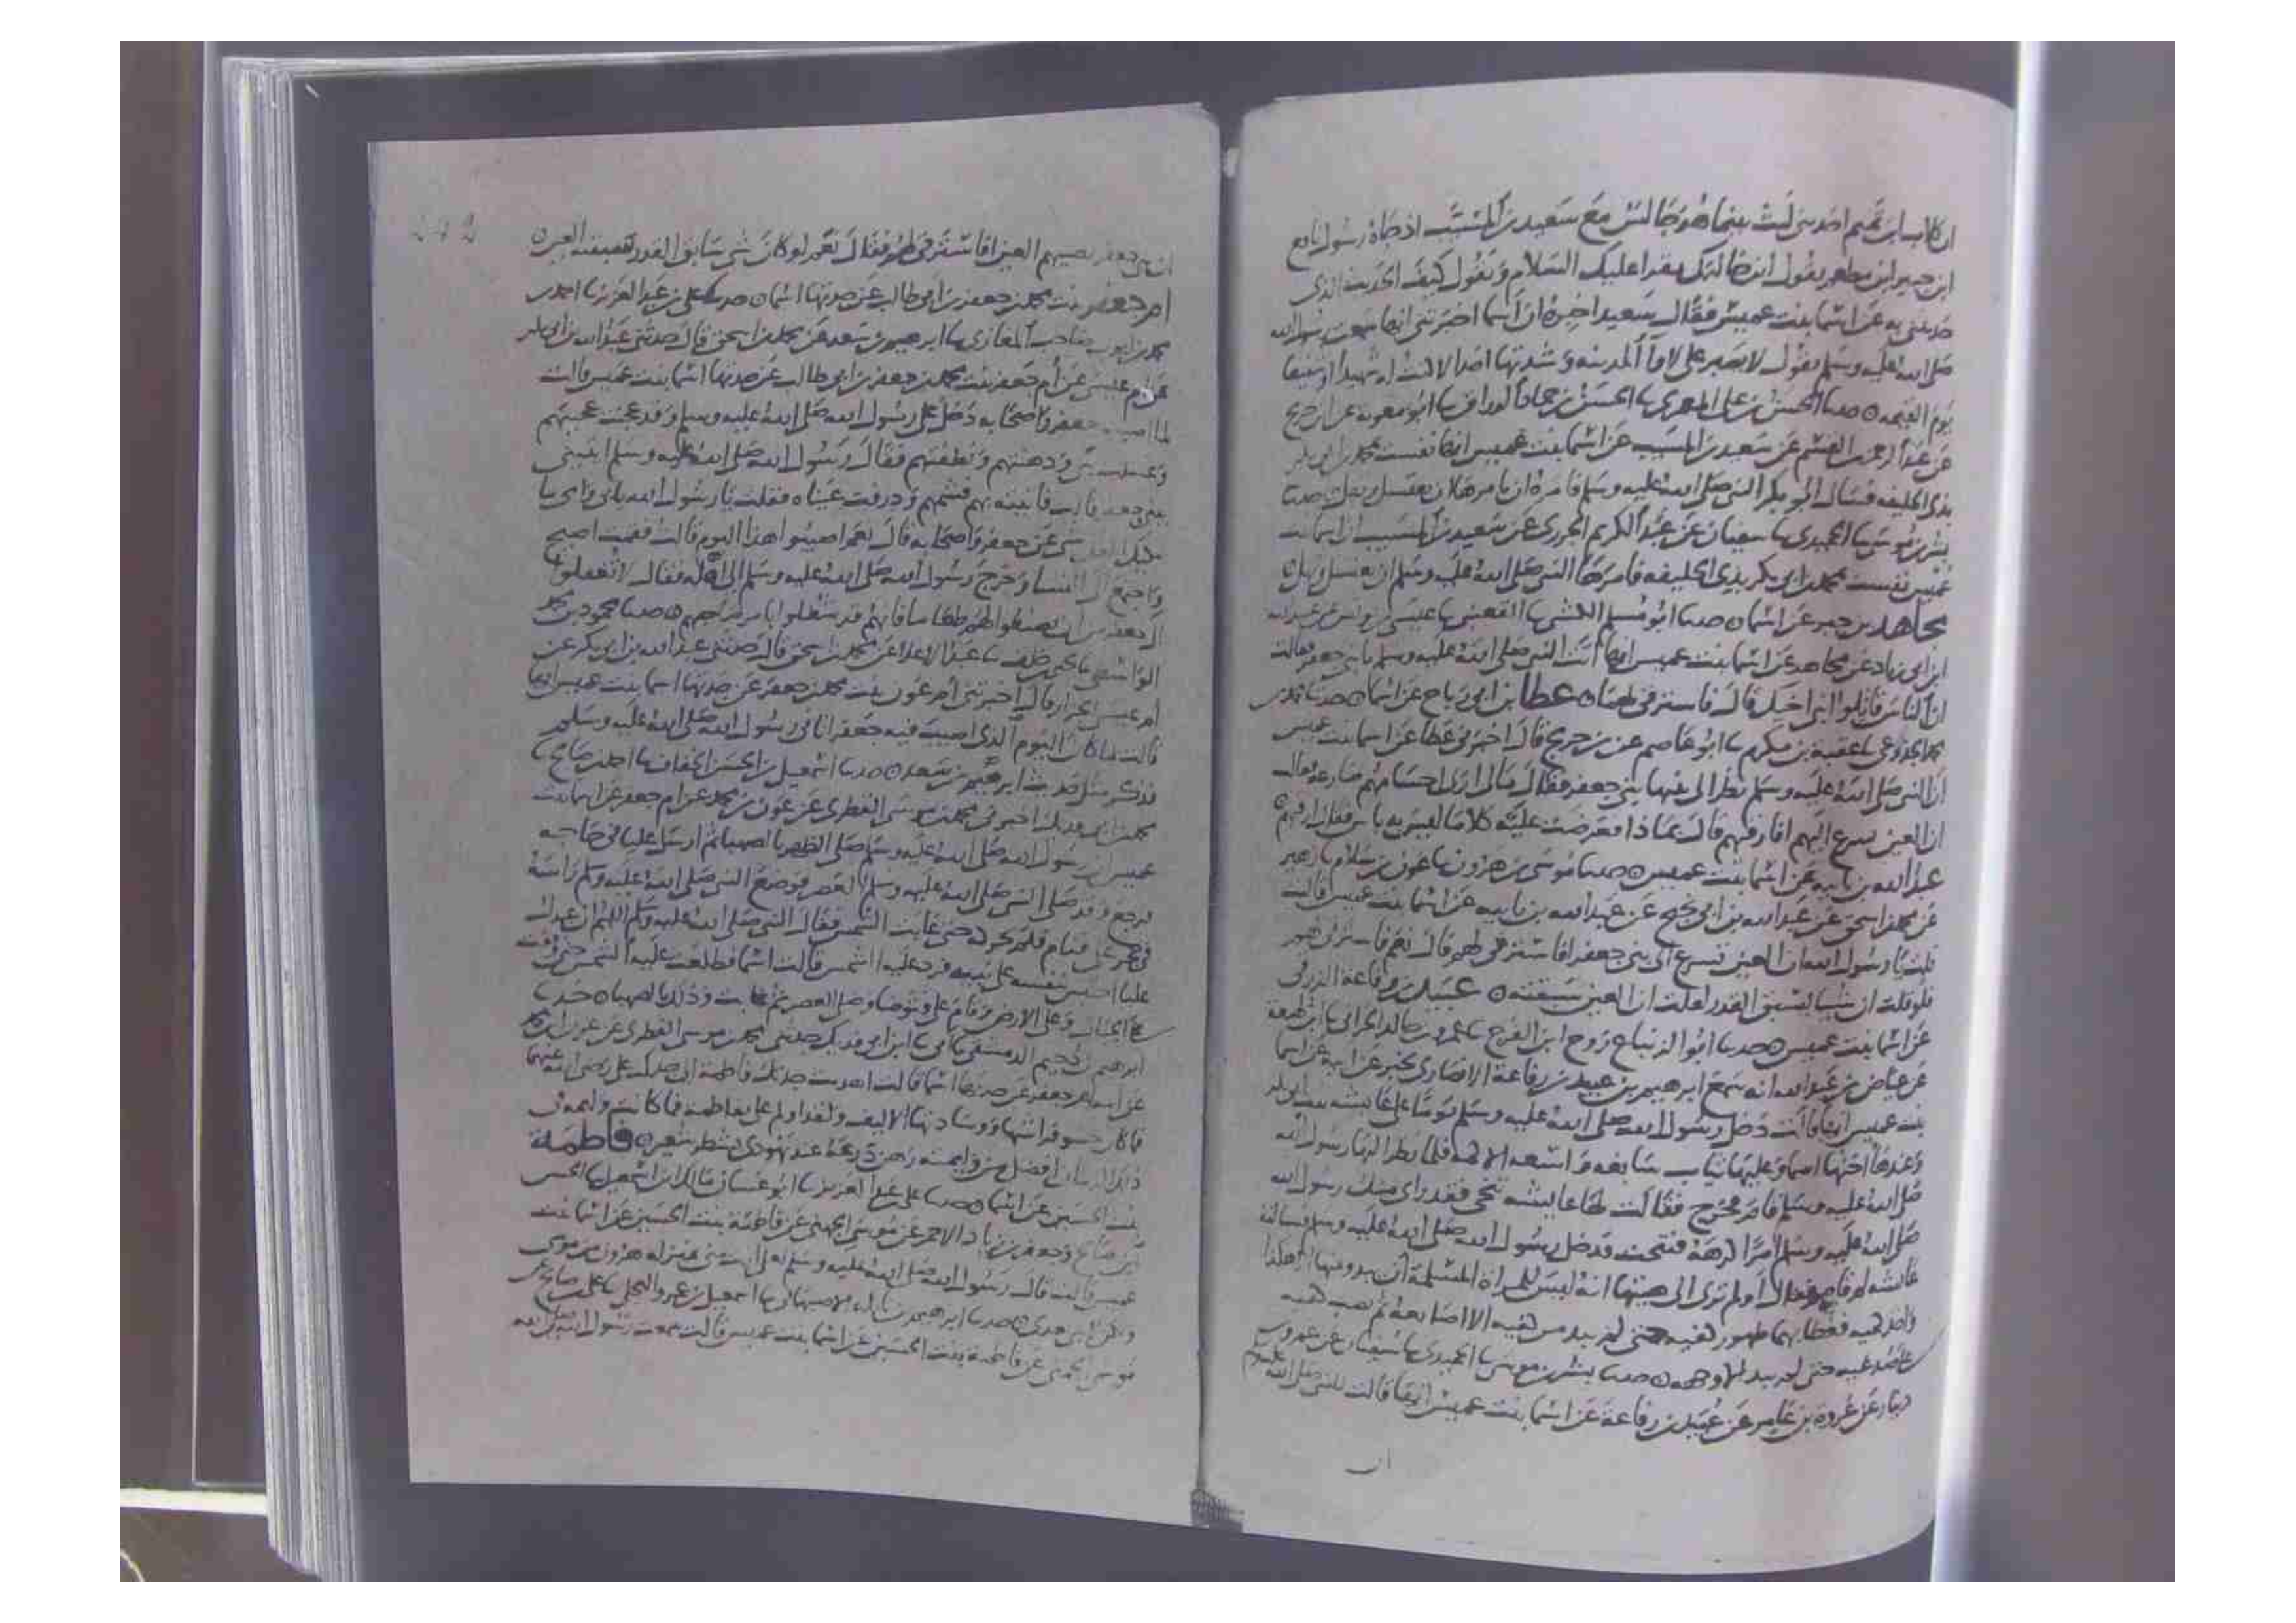 ان كلاب ابن تميم احد بنى ليث بينما هو جالس مع سعيد بن المسيب اذ جاه رسول نافع
ابن جبير ابن مطعم يقول ان خالتك يقرا عليك السلام ويقول كيف الحديث الذى
حدثتنى به عن اسما بنت عميس فقال سعيد اخبره ان اسما اخبرتنى انها سمعت رسول الله
صلى الله عليه وسلم يقول لا يصبر على لاوا المدينه وشدتها احد الا كنت له شهيدا او شفيعا
يوم القيمه ٥ حدثنا الحسن بن على المعمرى ثنا الحسن بن حماد الوراق ثنا ابو معويه عن ابن جريج
عن عبد الرحمن بن القسم عن سعيد بن المسيب عن اسما بنت عميس انها نفست محمد بن ابى بكر
بذى الحليفه فسال ابو بكر النبى صلى الله عليه وسلم فامره ان يامرها ان تغتسل وتهل حدثنا
بشر بن موسى ثنا الحميدى ثنا سفيان عن عبد الكريم الجزرى عن سعيد بن المسيب ان اسما بنت
عميس نفست بمحمد بن ابى بكر بذى الحليفه فامرها النبى صلى الله عليه وسلم ان تغتسل وتهل ٥
مجاهد بن جبر عن اسما ٥ حدثنا ابو مسلم الكشى ثنا القعنبى ثنا عيسى بن يونس عن عبيد الله
ابن ابى زياد عن مجاهد عن اسما بنت عميس انها اتت النبى صلى الله عليه وسلم ببنى جعفر فقالت
ان الناس قاتلوا بنى اخيك قال فاسترقى لهم ٥ عطا بن ابى رباح عن اسما ٥ حدثنا
ثنا عقبة بن مكرم ثنا ابو عاصم عن بن جريج قال اخبرنى عطا عن اسما بنت عميس
ان النبى صلى الله عليه وسلم نظر الى بنيها بنى جعفر فقال مالى ارى اجسامهم ضارعة قالت
ان العين تسرع اليهم افارقيهم قال بماذا فعرضت عليه كلاما ليس به باس فقال ارقيهم
عبد الله بن بابيه عن اسما بنت عميس ٥ حدثنا موسى بن هرون ثنا عون بن سلام ثنا زهير
عن محمد بن اسحق عن عبد الله بن ابى نجيح عن عبد الله بن بابيه عن اسما بنت عميس قالت
قلت يا رسول الله ان العين تسرع الى بنى جعفر افاسترقى لهم قال نعم فاسترقى لهم
فلو قلت ان شيا يسبق القدر لقلت ان العين سبقته ٥ عبيد بن رفاعة الزرقى
عن اسما بنت عميس ٥ حدثنا ابو الزنباع روح ابن الفرج ثنا عمرو بن خالد الحرانى ثنا ابن لهيعة
عن عياض بن عبد الله انه سمع ابرهيم بن عبيد بن رفاعة الانصارى يخبر عن ابيه عن اسما
بنت عميس انها قالت دخل رسول الله صلى الله عليه وسلم يوما على عايشه بنت ابى بكر
وعندها اختها اسما وعليها ثياب سابغه واسعه الاكمه فلما نظر اليها رسول الله
صلى الله عليه وسلم قام فخرج فقالت لها عايشه تنحى فقد راى منك رسول الله
صلى الله عليه وسلم امرا كرهه فتنحت فدخل رسول الله صلى الله عليه وسلم فسالته
عايشه لم قام فقال اولم ترى الى هيئتها انه ليس للمراة المسلمة ان يبدو منها الا هكذا
واخذ كميه فغطا بهما ظهور كفيه حتى لم يبد من كفيه الا اصابعه ثم نصب كفيه
على صدغيه حتى لم يبد الا وجهه ٥ حدثنا بشر بن موسى ثنا الحميدى ثنا سفيان عن عمرو بن
دينار عن عروة بن عامر عن عبيد بن رفاعة عن اسما بنت عميس انها قالت للنبى صلى الله عليه وسلم
ان
ان بنى جعفر تصيبهم العين افاسترقى لهم فقال نعم لو كان شى سابق القدر لسبقته العين ٥
ام جعفر بنت محمد بن جعفر بن ابى طالب عن جدتها اسما ٥ حدثنا على بن عبد العزيز ثنا احمد بن
محمد بن ايوب صاحب المغازى ثنا ابرهيم بن سعد عن محمد بن اسحق قال حدثنى عبد الله بن ابى بكر
عن ام عيسى عن ام جعفر بنت محمد بن جعفر بن ابى طالب عن جدتها اسما بنت عميس قالت
لما اصيب جعفر واصحابه دخل على رسول الله صلى الله عليه وسلم وقد عجنت عجينهم
وغسلت بنى ودهنتهم ونظفتهم فقال رسول الله صلى الله عليه وسلم ايتينى
ببنى جعفر قالت فاتيته بهم فشمهم وذرفت عيناه فقلت يا رسول الله بابى وامى ما
يبكيك ابلغك شى عن جعفر واصحابه قال نعم اصيبوا هذا اليوم قالت فقمت اصيح
واجتمع الى النسا وخرج رسول الله صلى الله عليه وسلم الى اهله فقال لا تغفلوا
ال جعفر من ان تصنعوا لهم طعاما فانهم قد شغلوا بامر صاحبهم ٥ حدثنا محمود بن محمد
الواسطى ثنا يحيى بن خلف ثنا عبد الاعلا عن محمد بن اسحق قال حدثنى عبد الله بن ابى بكر عن
ام عيسى الجزار قال اخبرتنى ام عون بنت محمد بن جعفر عن جدتها اسما بنت عميس انها
قالت لما كان اليوم الذى اصيب فيه جعفر اتانى رسول الله صلى الله عليه وسلم
فذكر مثل حديث ابرهيم بن سعد ٥ حدثنا اسمعيل بن الحسن الخفاف ثنا احمد بن صالح ثنا
محمد بن ابى فديك اخبرنى محمد بن موسى الفطرى عن عون بن محمد عن ام جعفر عن اسما بنت
عميس ان رسول الله صلى الله عليه وسلم صلى الظهر بالصهبا ثم ارسل عليا فى حاجه
فرجع وقد صلى النبى صلى الله عليه وسلم العصر فوضع النبى صلى الله عليه وسلم راسه
فى حجر على فنام فلم يحركه حتى غابت الشمس فقال النبى صلى الله عليه وسلم اللهم ان عبدك
عليا احتبس بنفسه على نبيه فرد عليه الشمس قالت اسما فطلعت عليه الشمس حتى وقفت
على الجبال وعلى الارض وقام على فتوضا وصلى العصر ثم غابت وذلك بالصهبا ٥ حدثنا
ابرهيم بن دحيم الدمشقى ثنا ابى ثنا ابن ابى فديك حدثنى محمد بن موسى الفطرى عن عون ابن محمد
عن امه ام جعفر عن جدتها اسما قالت اهديت جدتك فاطمة الى جدك على رضى الله عنهما
فما كان حشو فراشها ووسادتها الا ليف ولقد اولم على بفاطمه فما كانت وليمه فى
ذلك الزمان افضل من وليمته رهن درعه عند يهودى بشطر شعير ٥ فاطمة
بنت الحسين عن اسما ٥ حدثنا على بن عبد العزيز ثنا ابو غسان مالك ابن اسمعيل ثنا الحسن
ابن صالح وجعفر بن زياد الاحمر عن موسى الجهنى عن فاطمة بنت الحسين عن اسما بنت
عميس قالت قال رسول الله صلى الله عليه وسلم لعلى انت منى بمنزله هرون من موسى
ثنا اسمعيل بن عمرو البجلى ثنا على بن صالح عن
موسى الجهنى عن فاطمة بنت الحسين عن اسما بنت عميس قالت سمعت رسول الله صلى الله